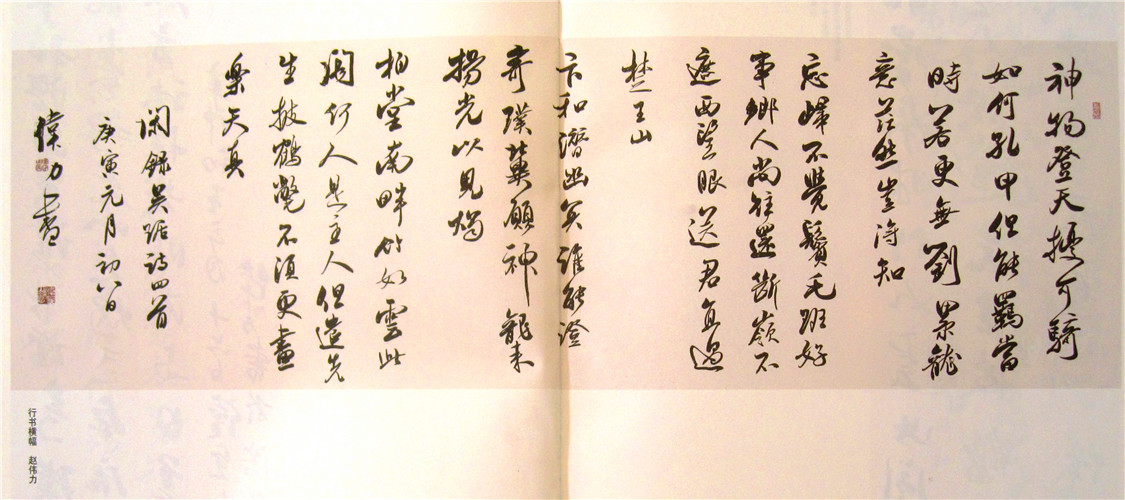 神物登天擾可騎
如何孔甲但能羈當
時若更無劉累龍
意茫然豈得知
忘歸不覺鬢毛班好
事鄉人尚往還斷嶺不
遮西望眼送君直過
楚王山
卞和潛幽冥誰能證
奇璞冀願神龍来
揚光以見燭
柏堂南畔竹如雲此
閣何人是主人但遣先
生披鶴氅不須更畫
樂天真
閑錄詩四首
庚寅元月初八日
偉力書
行书横幅 赵伟力